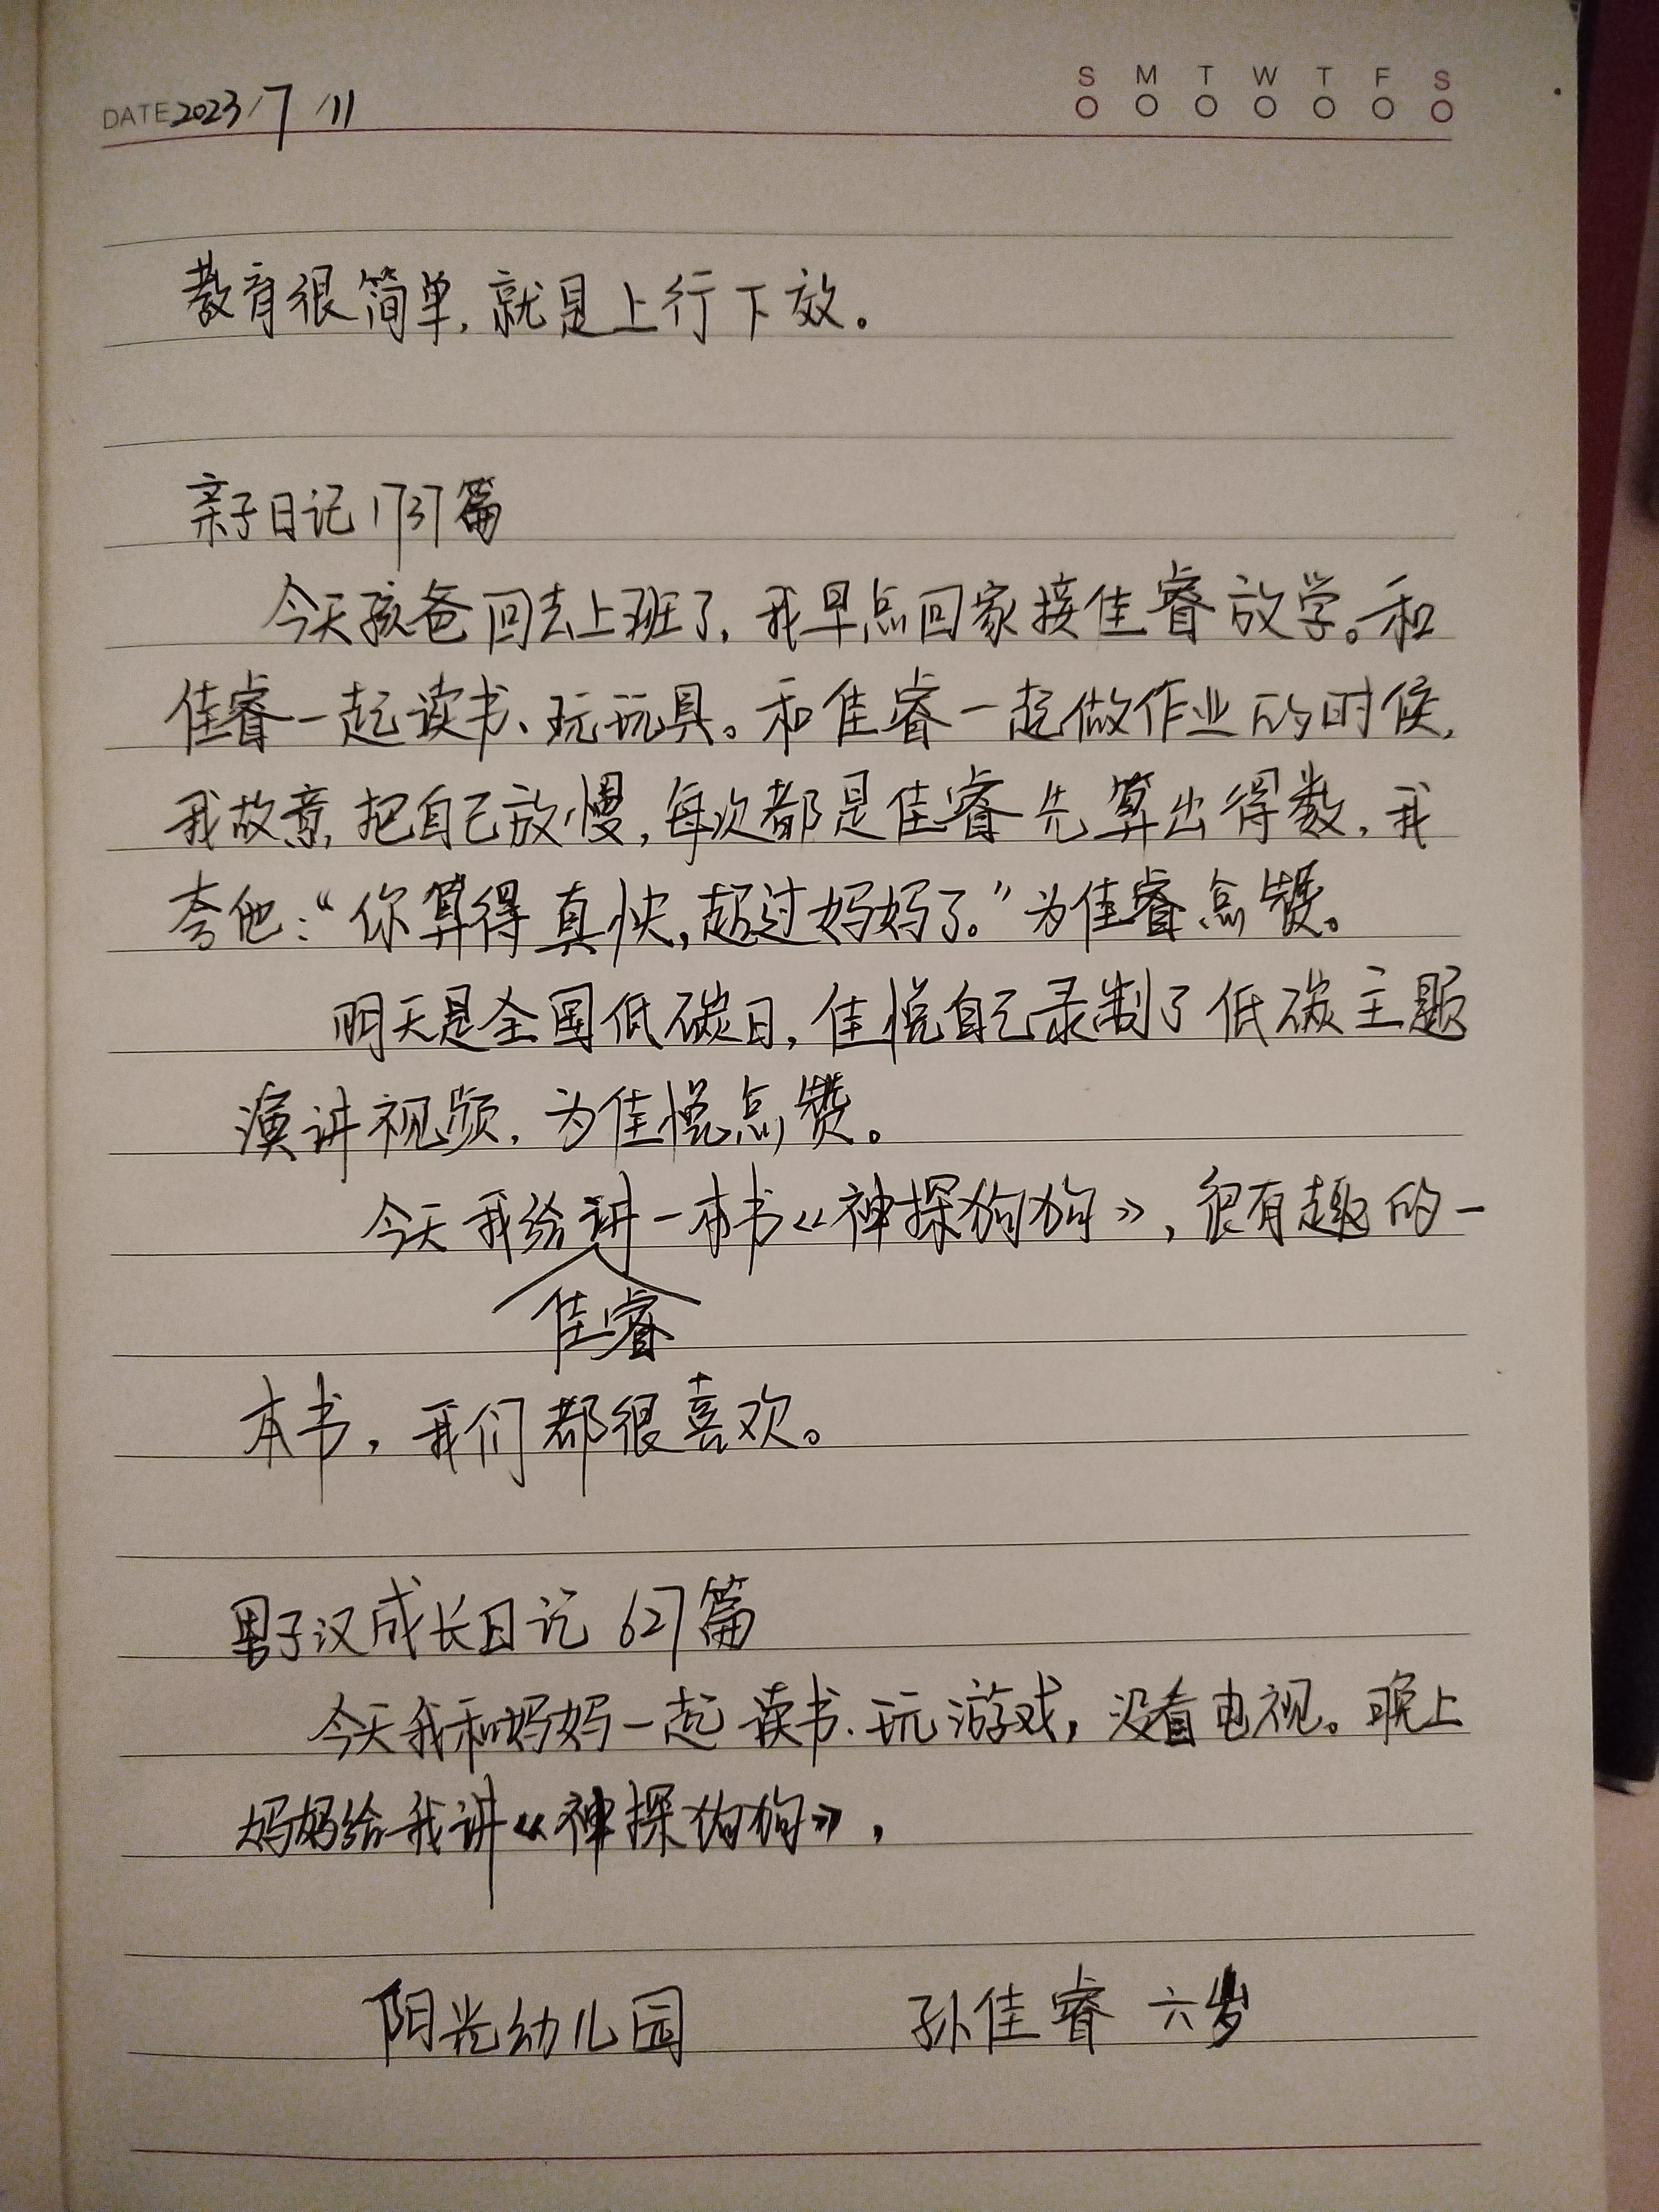 S M T W T F S
DATE 2023/7/11
教育很简单，就是上行下效。
亲子日记1737篇
今天孩爸回去上班了，我早点回家接佳睿放学。和
佳睿一起读书、玩玩具。和佳睿一起做作业的时候，
我故意把自己放慢，每次都是佳睿先算出得数，我
夸他：“你算得真快，超过妈妈了。”为佳睿点赞。
明天是全国低碳日，佳悦自己录制了低碳主题
演讲视频，为佳悦点赞。
今天我给讲一本书《神探狗狗》，很有趣的一
佳睿
本书，我们都很喜欢。
男子汉成长日记 627篇
今天我和妈妈一起读书、玩游戏，没看电视。晚上
妈妈给我讲《神探狗狗》，
阳光幼儿园 孙佳睿 六岁